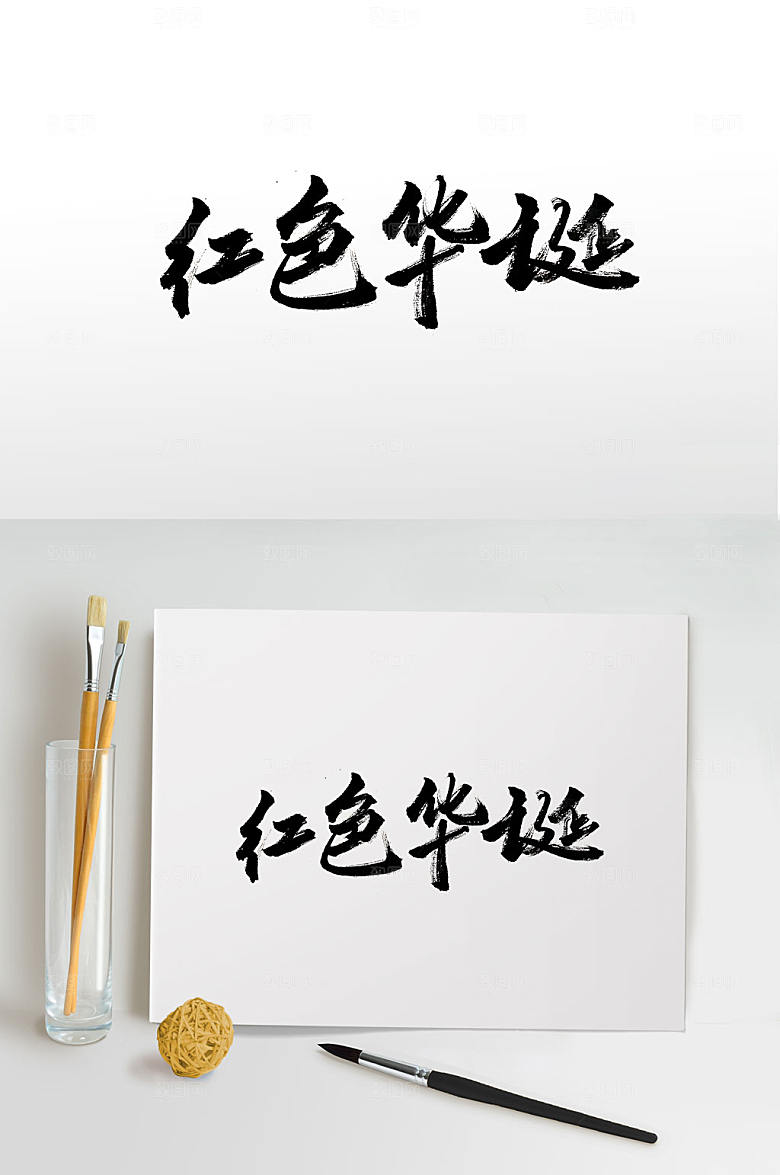 红色华诞
红色华诞